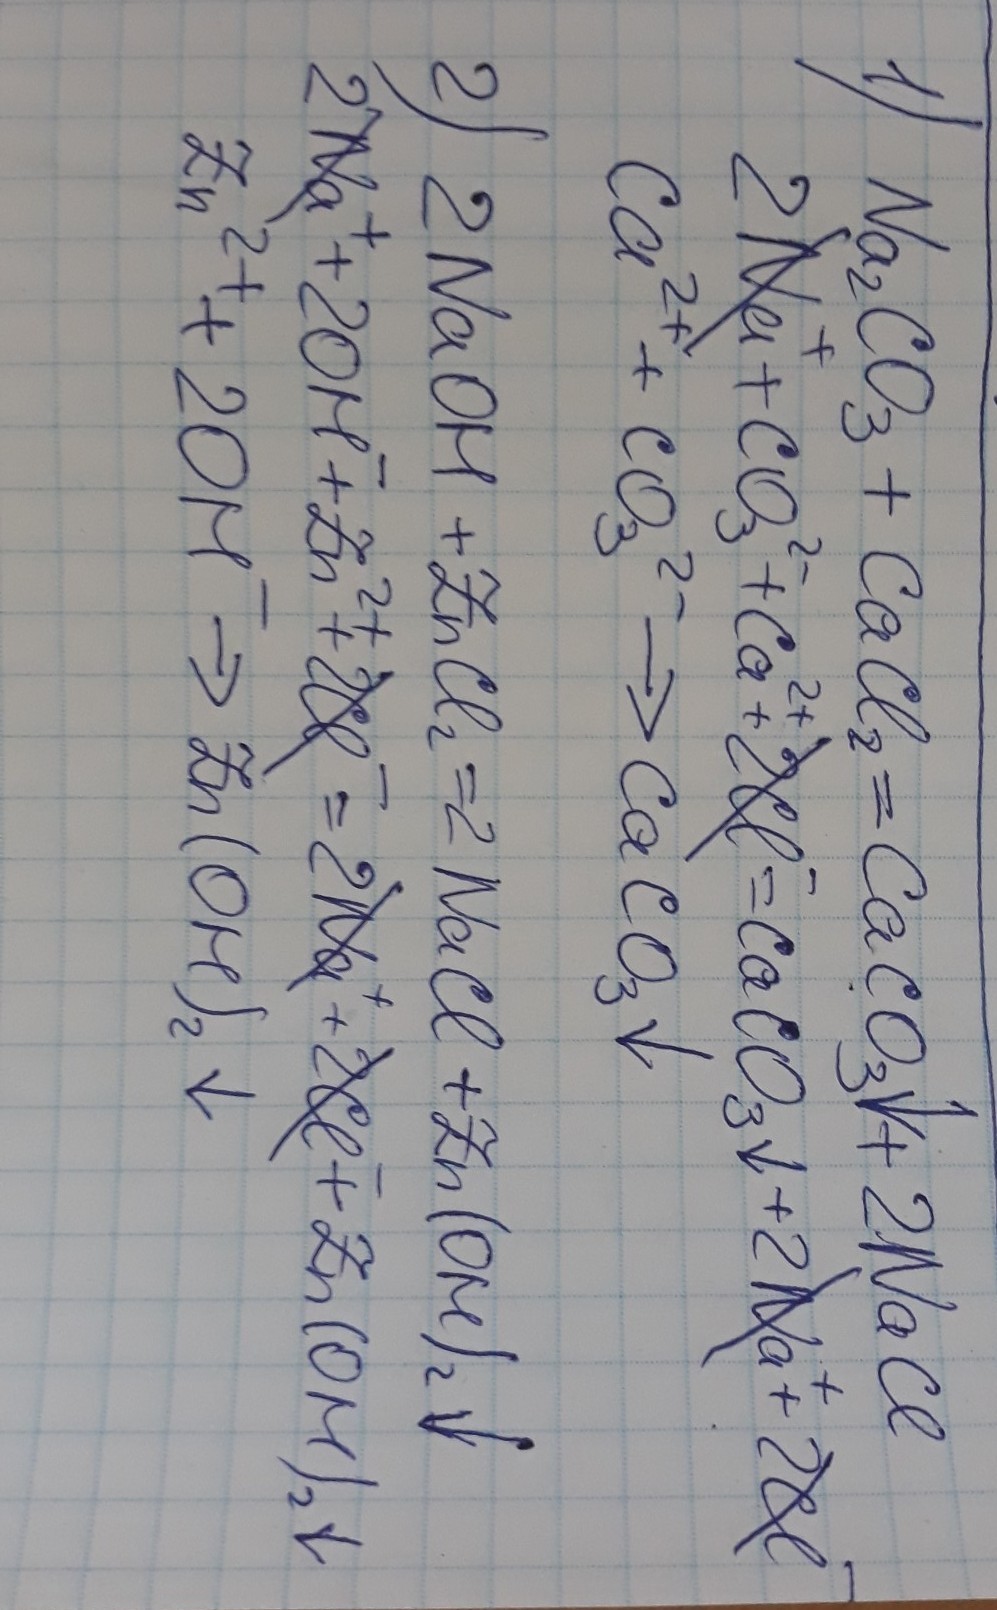 1) Na₂CO₃ + CaCl₂ = CaCO₃↓ + 2NaCl
2Na⁺ + CO₃²⁻ + Ca²⁺ + 2Cl⁻ = CaCO₃↓ + 2Na⁺ + 2Cl⁻
Ca²⁺ + CO₃²⁻ → CaCO₃↓
2) 2NaOH + ZnCl₂ = 2NaCl + Zn(OH)₂↓
2Na⁺ + 2OH⁻ + Zn²⁺ + 2Cl⁻ = 2Na⁺ + 2Cl⁻ + Zn(OH)₂↓
Zn²⁺ + 2OH⁻ → Zn(OH)₂↓